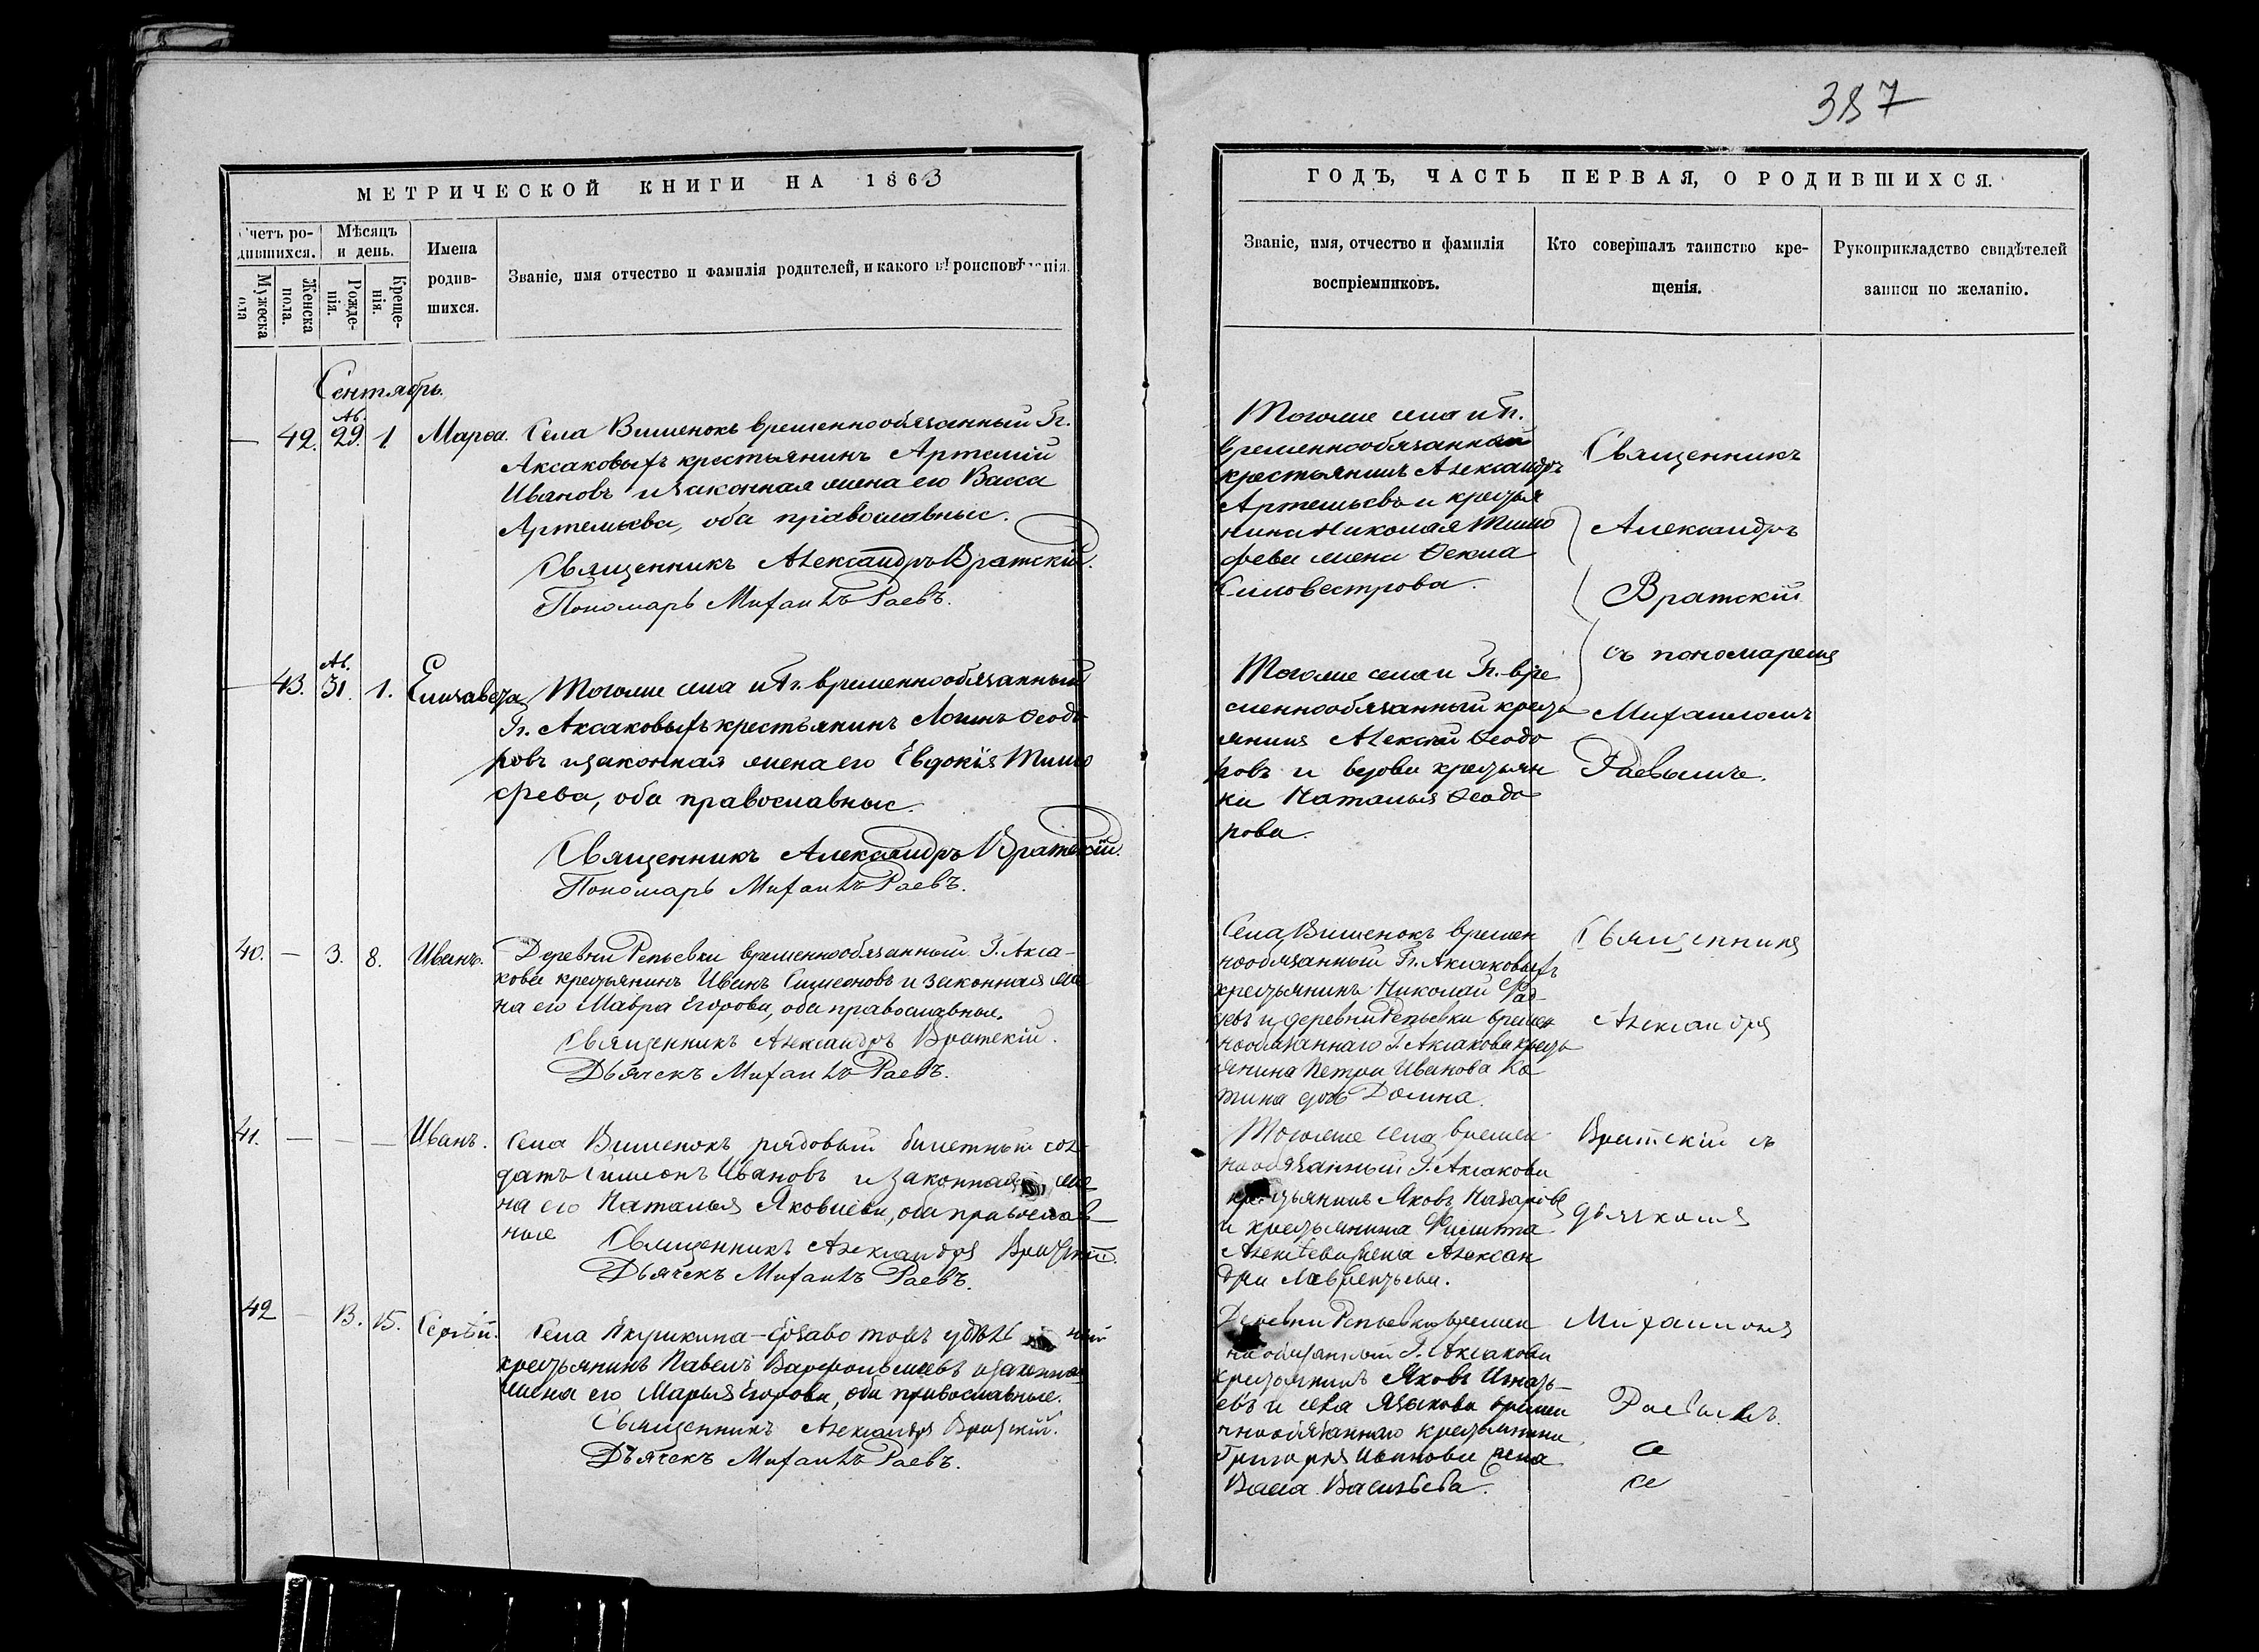 387
МЕТРИЧЕСКОЙ КНИГИ НА 1863
ГОДЪ, ЧАСТЬ ПЕРВАЯ, О РОДИВШИХСЯ.
Счетъ ро-
дившихся.
Мужеска
пола
Женска
пола.
Мѣсяцъ
и день.
Рожде-
нія.
Креще-
нія.
Имена
родив-
шихся.
Званіе, имя отчество и фамилія родителей, и какого вѣроисповѣданія.
Званіе, имя, отчество и фамилія
воспріемниковъ.
Кто совершалъ таинство кре-
щенія.
Рукоприкладство свидѣтелей
записи по желанію.
Сентябрь.
— 42. Ав. 29. 1 Марѳа.
Села Вишенокъ временнообязанный Гг.
Аксаковыхъ крестьянинъ Артемій
Ивановъ и законная жена его Васса
Артемьева, оба православные.
Священникъ Александръ Вратскій.
Пономарь Михаилъ Раевъ.
Тогоже села и Гг.
временнообязанный
крестьянинъ Александръ
Артемьевъ и кресья
нина Николая Тимо
феева жена Ѳекла
Силовестрова.
Священникъ
Александръ
Вратскій
съ пономаремъ
Михаиломъ
Раевымъ.
— 43. Ав. 31. 1. Елизавета
Тогоже села и Гг. временнообязанный
Гг. Аксаковыхъ крестьянинъ Логинъ Ѳеодо
ровъ и законная жена его Евдокія Тимо
феева, оба православные.
Священникъ Александръ Вратскій.
Пономарь Михаилъ Раевъ.
Тогоже села и Гг. вре
меннообязанный кресть
янинъ Алексѣй Ѳеодо
ровъ и вдова крестьян
ка Наталья Ѳеодо
рова.
40. — 3. 8. Иванъ.
Деревни Репьевки временнообязанный Г. Акса-
кова крестьянинъ Иванъ Симеоновъ и законная же
на его Мавра Егорова, оба православные.
Священникъ Александръ Вратскій.
Дьячекъ Михаилъ Раевъ.
Села Вишенокъ времен
нообязанный Гг. Аксаковыхъ
крестьянинъ Николай
и деревни Репьевки времен
нообязаннаго Г. Аксакова кресть
янина Петра Иванова
дочь Домна.
Священникъ
Александръ
41. — — — Иванъ.
Села Вишенокъ рядовый билетный сол
датъ Симеонъ Ивановъ и законная же
на его Наталья Яковлева, оба православ-
ные
Священникъ Александръ Вратскій.
Дьячекъ Михаилъ Раевъ.
Тогоже села времен
нообязанный Г. Аксакова
крестьянинъ Яковъ Назаровъ
и крестьянина Филиппа
Алексѣева жена Алексан
дра Лаврентьева.
Вратскій съ
дьячкомъ
42 — 13. 15. Сергѣй.
Села
крестьянинъ Павелъ Варфоломеевъ и законная
жена его Марья Егорова, оба православные.
Священникъ Александръ Вратскій.
Дьячекъ Михаилъ Раевъ.
Деревни Репьевки времен
нообязанный Г. Аксакова
крестьянинъ Яковъ Игнать-
евъ и села Языкова времен
нообязаннаго крестьянина
Григорія Иванова жена
Васса Васильева.
Михаиломъ
Раевымъ.